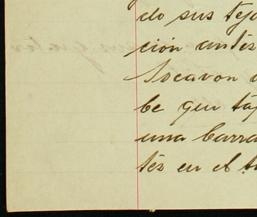 do sus teja
ción antes
Socavon
be que ta
una barra
téz en el t